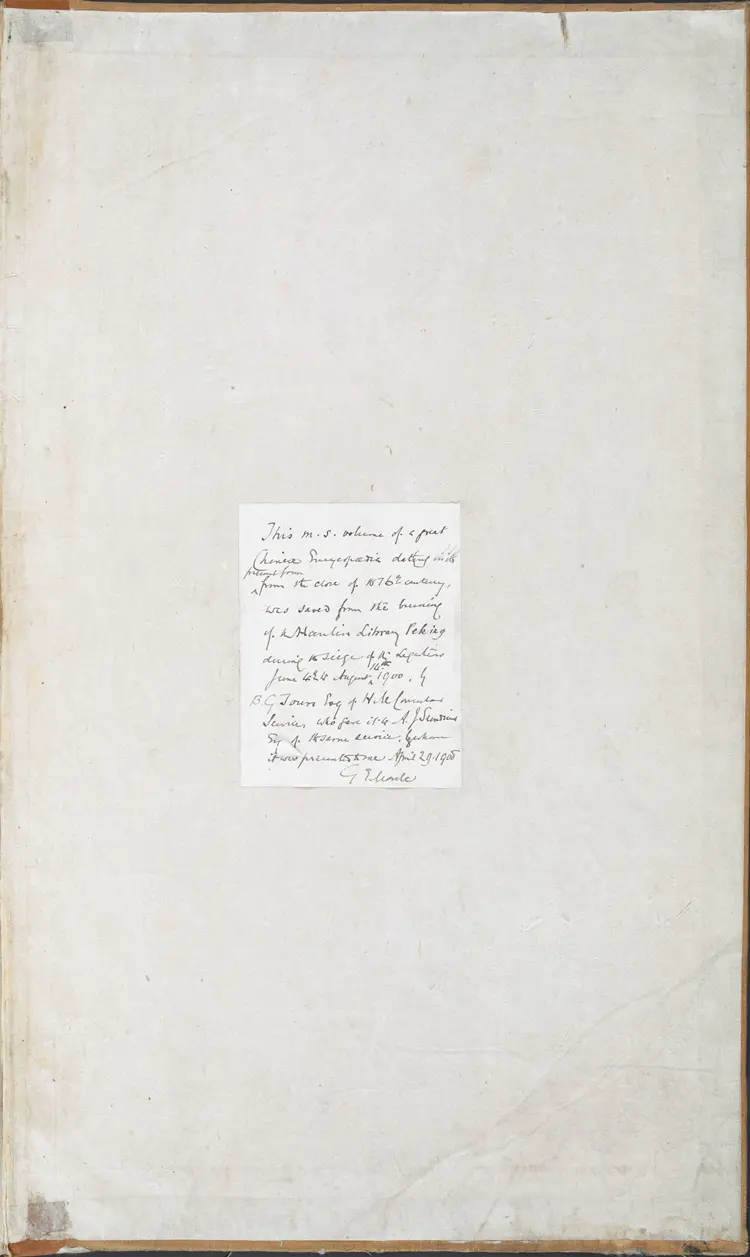 This m.s. volume of a great
Chinese Encyclopædia dating in its
present form
from the close of the 16th century,
was saved from the burning
of the Hanlin Library Peking
during the siege of the Legations
June to August 14th 1900, by
B G Tours Esq of H.M. Consular
Service, who gave it to A. J. Sundius
Esq of the same service, by whom
it was presented to me April 29. 1908
G E Moule